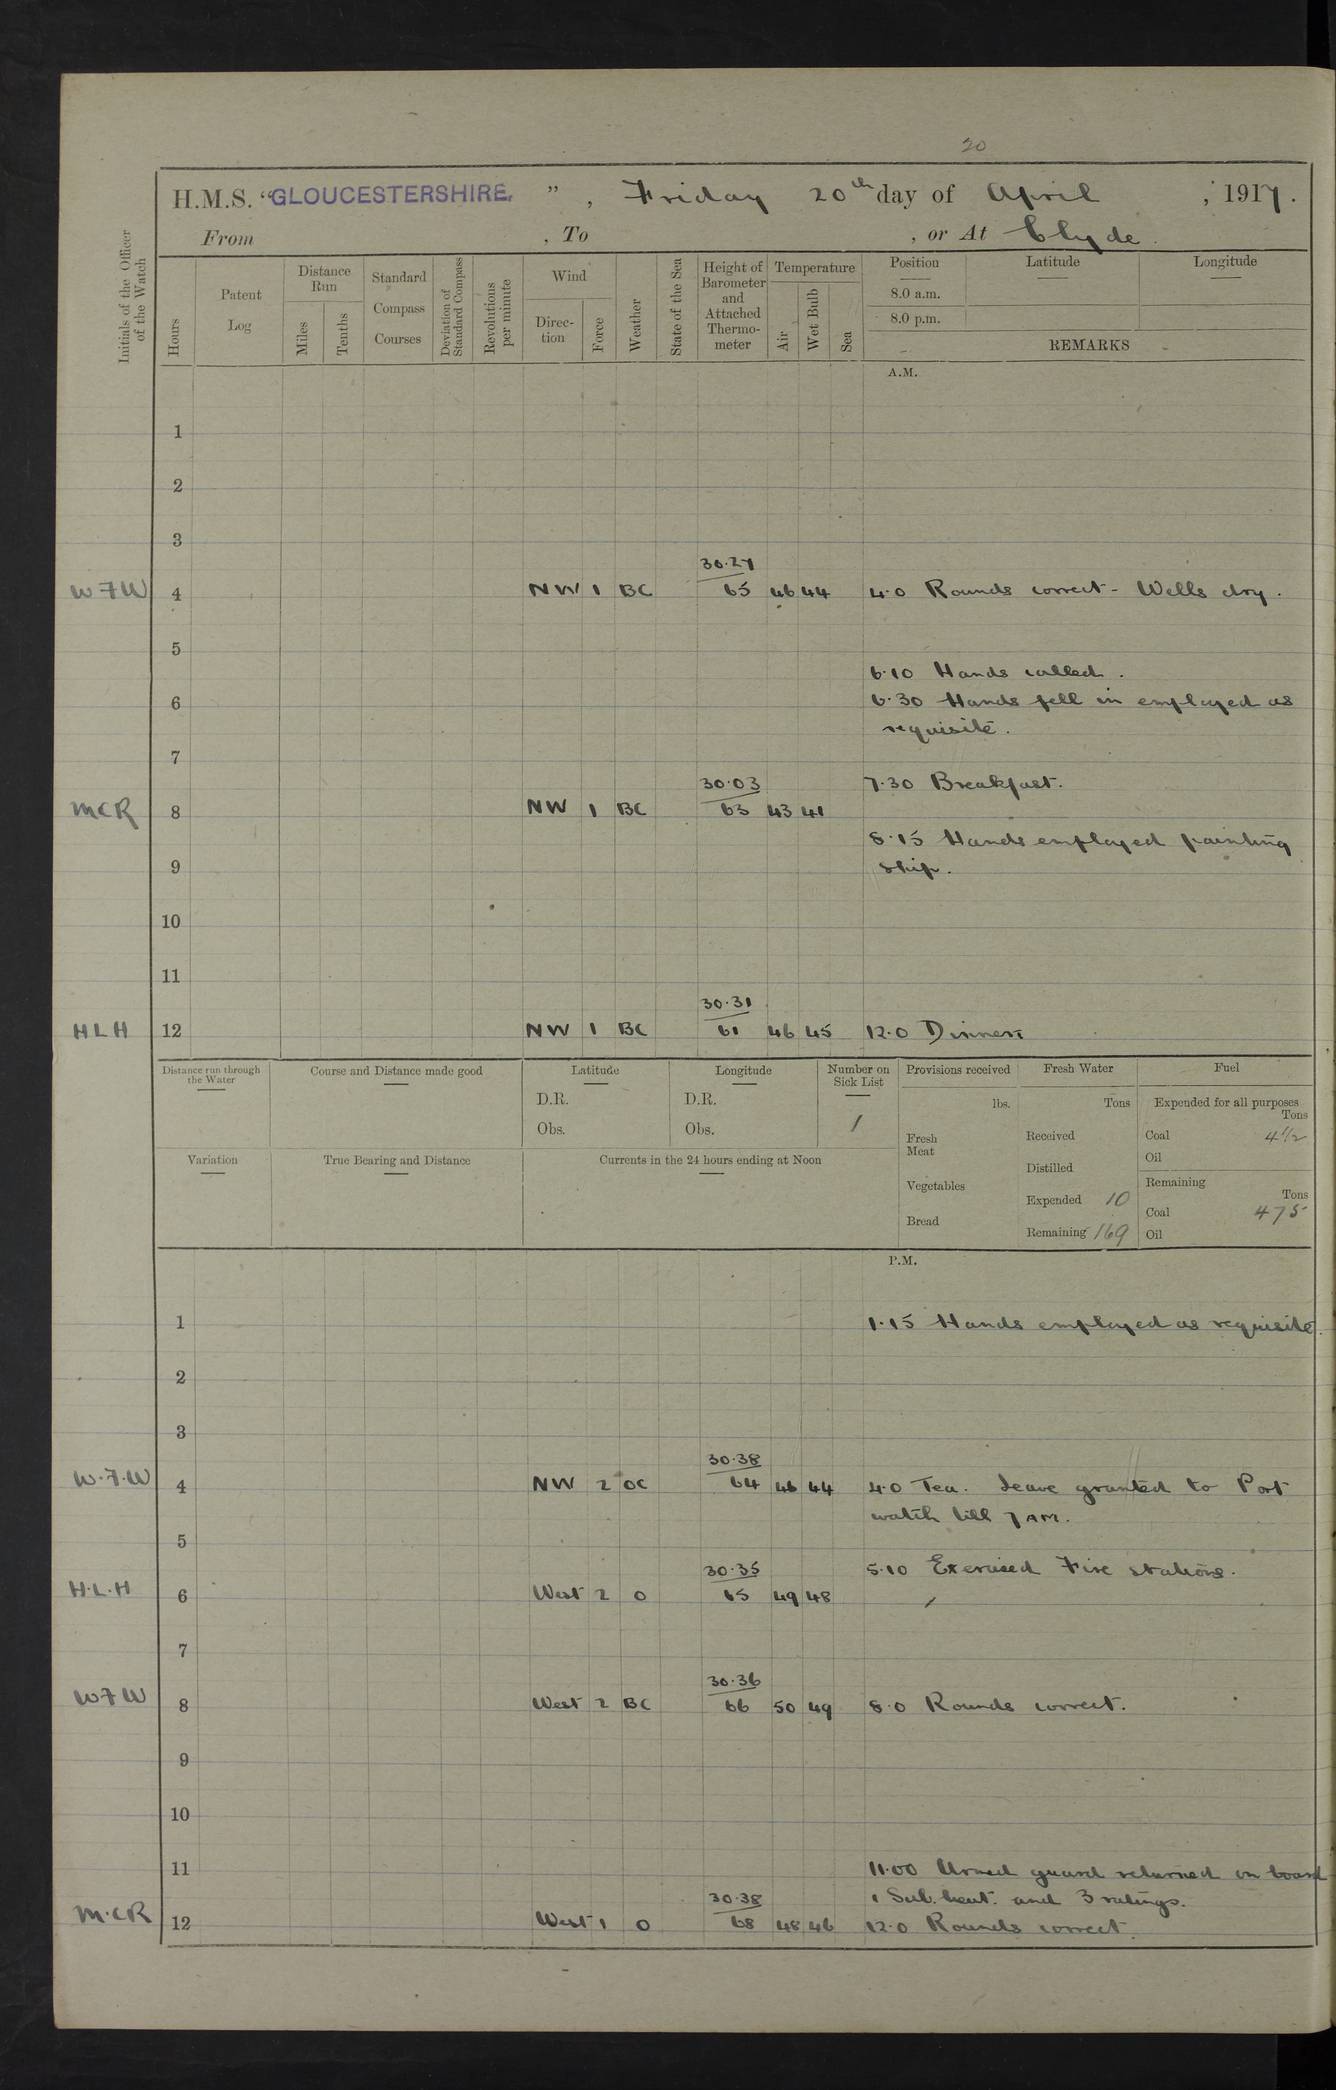 20
H.M.S. "GLOUCESTERSHIRE, ", Friday 20th day of April , 1917.
From , To , or At Clyde.
Initials of the Officer of the Watch
Hours
Patent Log
Distance Run
Miles
Tenths
Standard Compass Courses
Deviation of Standard Compass
Revolutions per minute
Wind
Direction
Force
Weather
State of the Sea
Height of Barometer and Attached Thermometer
Temperature
Air
Wet Bulb
Sea
Position Latitude Longitude
8.0 a.m.
8.0 p.m.
REMARKS
A.M.
1
2
3
30.27
W F W 4 NW 1 BC 65 46 44 4.0 Rounds correct - Wells dry.
5
6.10 Hands called.
6 6.30 Hands fell in employed as
requisite.
7
30.03 7.30 Breakfast.
MCR 8 NW 1 BC 63 43 41
8.15 Hands employed painting
9 ship.
10
11
30.31
HLH 12 NW 1 BC 61 46 45 12.0 Dinners
Distance run through the Water
Course and Distance made good
Latitude
D.R.
Obs.
Longitude
D.R.
Obs.
Number on Sick List
1
Provisions received
lbs.
Fresh Meat
Vegetables
Bread
Fresh Water
Tons
Received
Distilled
Expended 10
Remaining 169
Fuel
Expended for all purposes
Tons
Coal 4 1/2
Oil
Remaining
Tons
Coal 475
Oil
Variation
True Bearing and Distance
Currents in the 24 hours ending at Noon
P.M.
1 1.15 Hands employed as requisite.
2
3
30.38
W.F.W 4 NW 2 OC 64 46 44 4.0 Tea. Leave granted to Port
watch till 7 AM.
5
30.35 5.10 Exercised Fire stations.
H.L.H 6 West 2 O 65 49 48
7
30.36
WFW 8 West 2 BC 66 50 49 8.0 Rounds correct.
9
10
11 11.00 Armed guard returned on board
30.38 1 Sub. Lieut. and 3 ratings.
M.CR 12 West 1 O 68 48 46 12.0 Rounds correct.